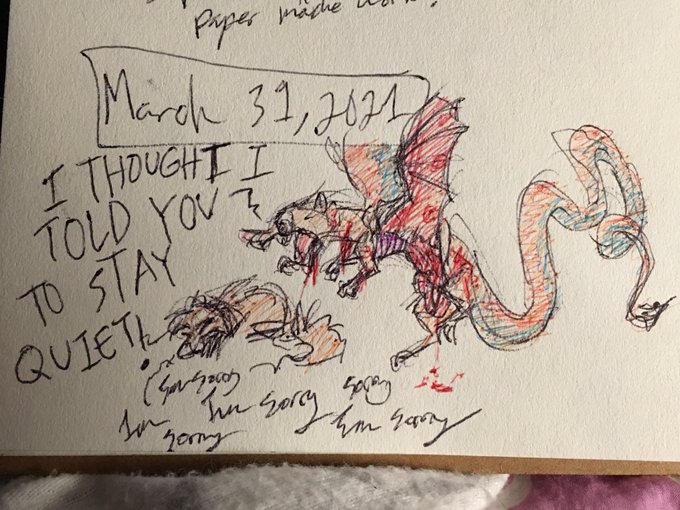 Paper mache work!
March 31, 2021
I THOUGHT I
TOLD YOU
TO STAY
QUIET!
Sorry
I'm Sorry Sorry
I'm Sorry
Sorry